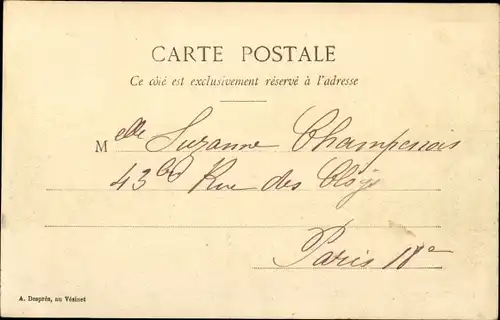 CARTE POSTALE
Ce côté est exclusivement réservé à l'adresse
Melle Suzanne Champenois
43bis Rue des Cloÿs
Paris 18e
A. Després, au Vésinet